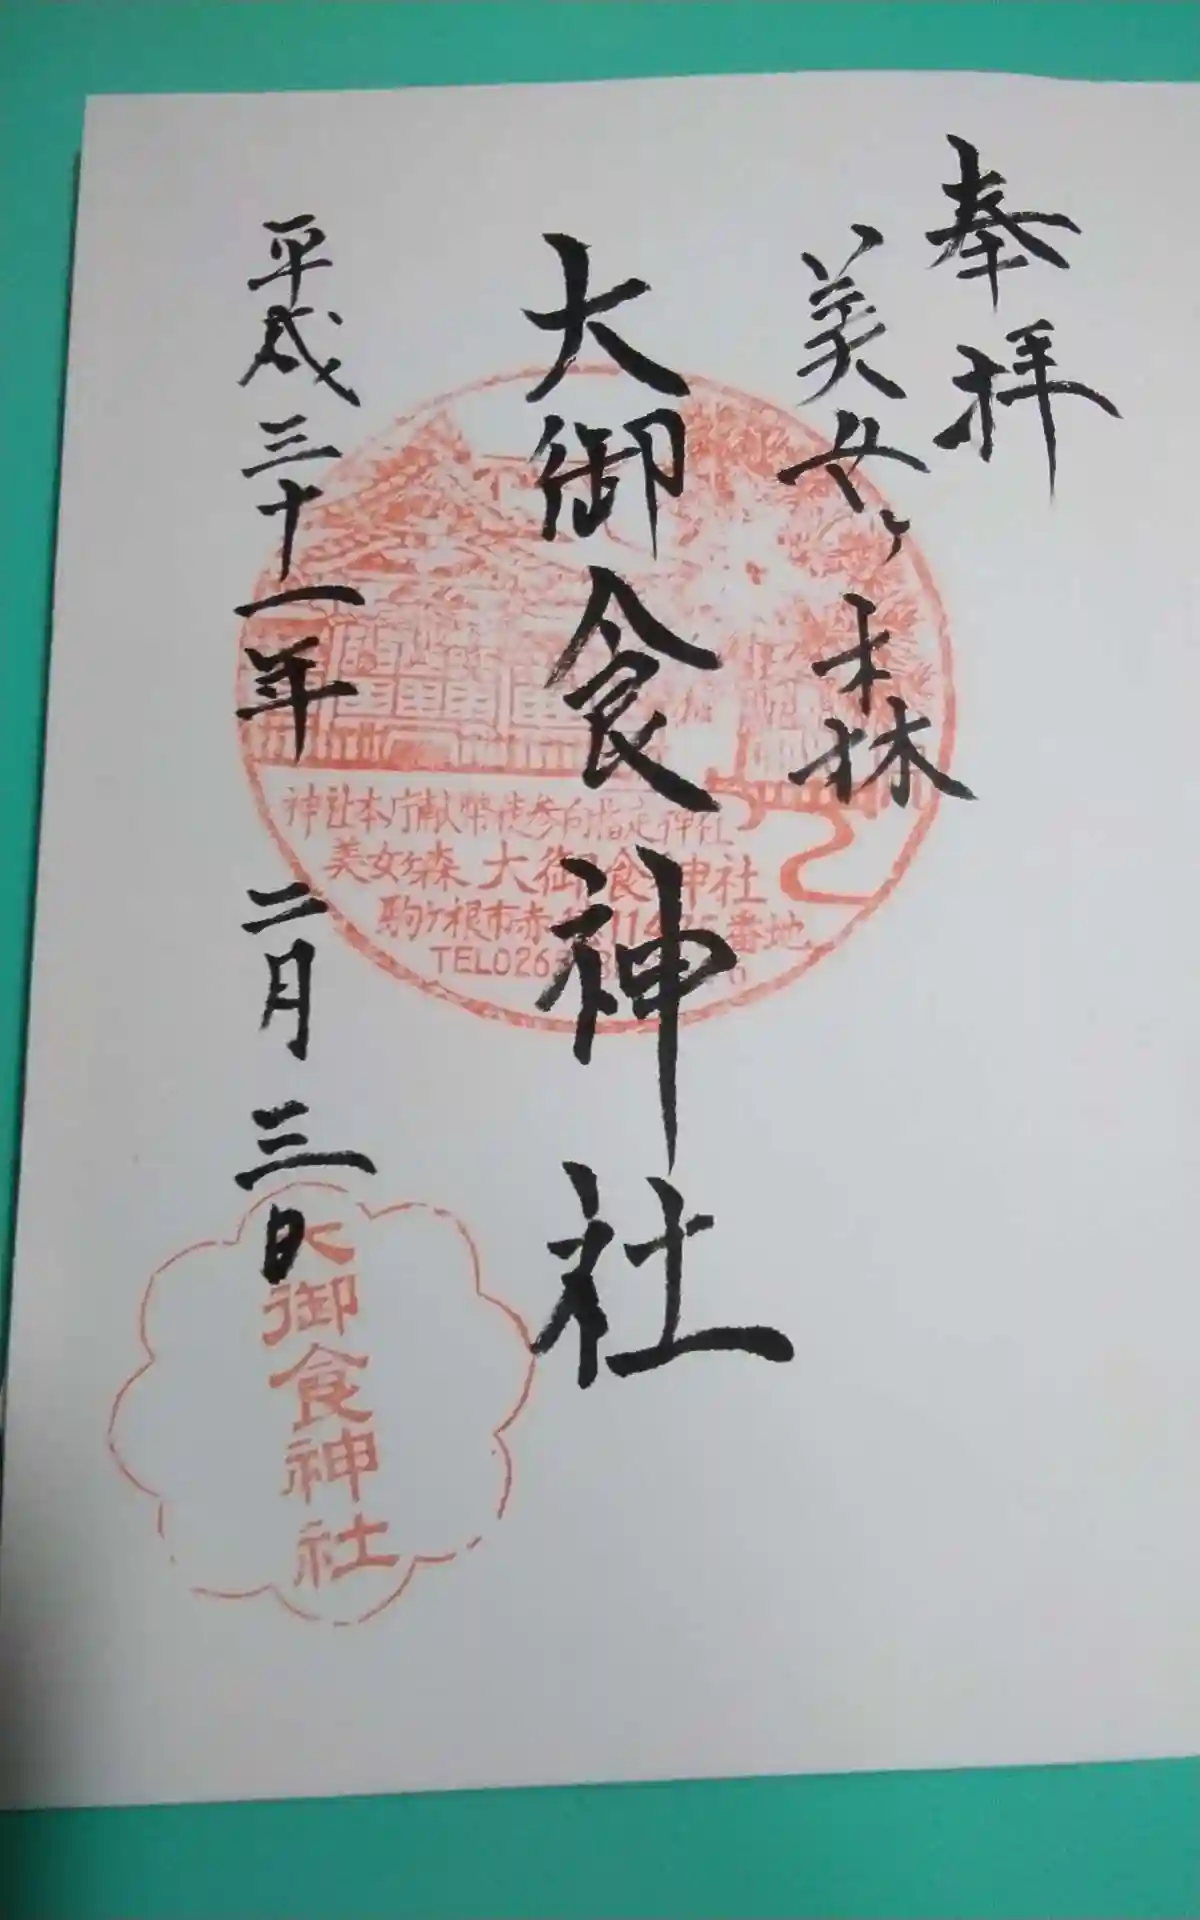 奉拝
美女ヶ森
大御食神社
平成三十一年 二月 三日
神社本庁献幣使参向指定神社
美女ヶ森 大御食神社
駒ヶ根市赤穂11475番地
TEL026
大御食神社